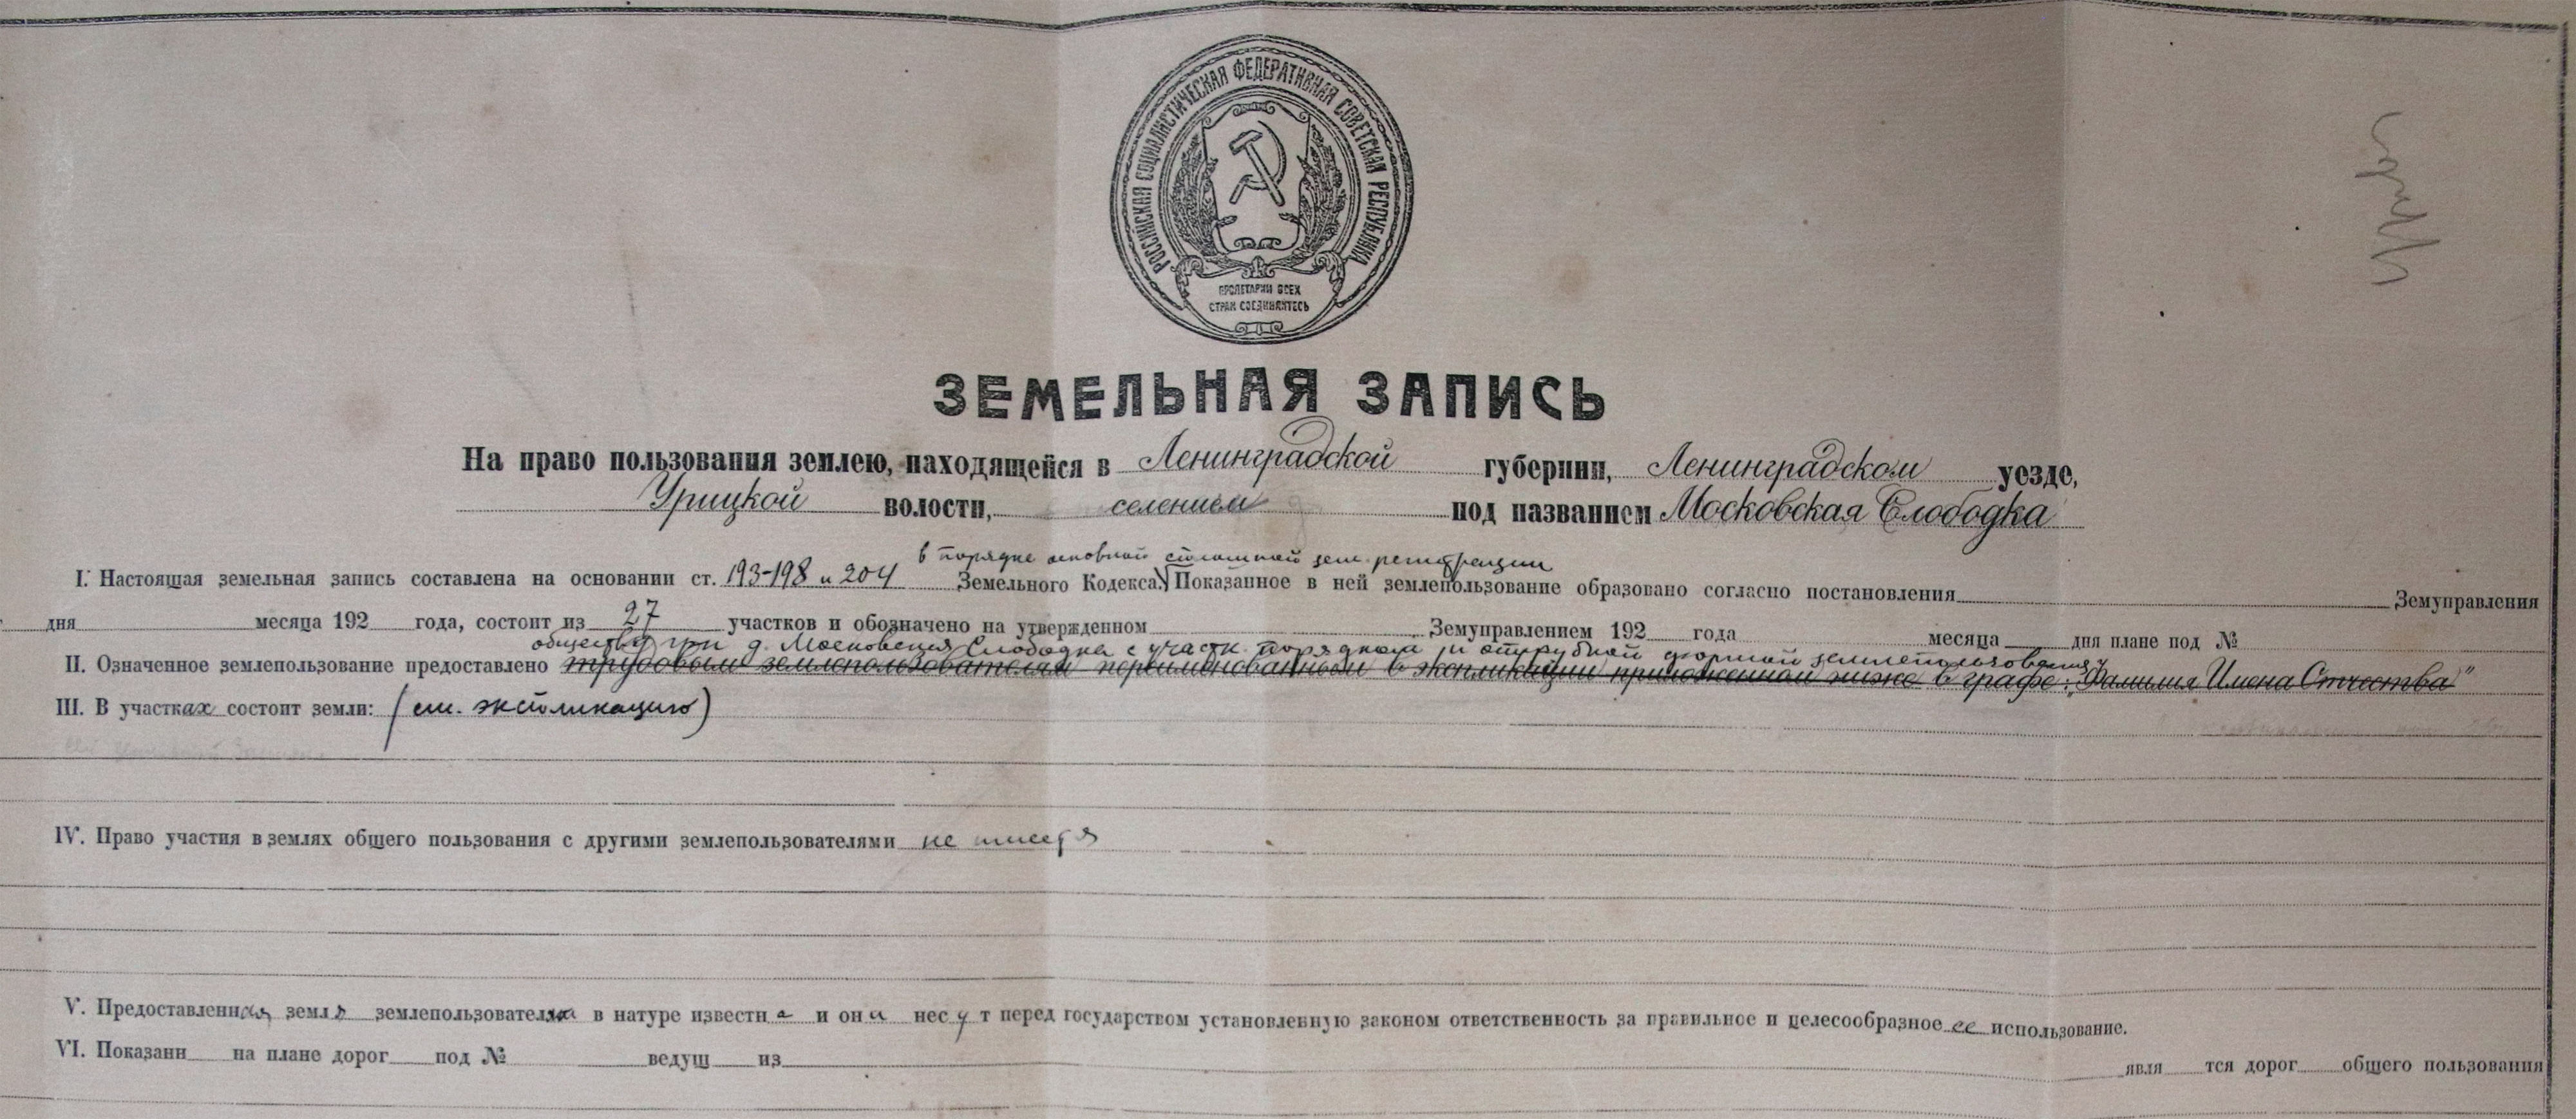 РОССИЙСКАЯ СОЦИАЛИСТИЧЕСКАЯ ФЕДЕРАТИВНАЯ СОВЕТСКАЯ РЕСПУБЛИКА
ПРОЛЕТАРИИ ВСЕХ
СТРАН СОЕДИНЯЙТЕСЬ
ЗЕМЕЛЬНАЯ ЗАПИСЬ
На право пользования землею, находящейся в Ленинградской губернии, Ленинградском уезде,
Урицкой волости, селением под названием Московская Слободка
в порядке основной сплошной зем. регистрации
I. Настоящая земельная запись составлена на основании ст. 193-198 и 204 Земельного Кодекса. Показанное в ней землепользование образовано согласно постановления Земуправления
дня месяца 192 года, состоит из 27 участков и обозначено на утвержденном Земуправлением 192 года месяца дня плане под №
обществу при д. Московская Слободка с участк. порядком и отрубной формой землепользования
II. Означенное землепользование предоставлено трудовым землепользователям переименованным в экспликации приложенной ниже в графе: „Фамилия Имена Отчества"
III. В участках состоит земли: (см. экспликацию)
IV. Право участия в землях общего пользования с другими землепользователями не имеется
V. Предоставленная земля землепользователям в натуре известна и они несут перед государством установленную законом ответственность за правильное и целесообразное ее использование.
VI. Показанн на плане дорог под № ведущ из явля тся дорог общего пользования